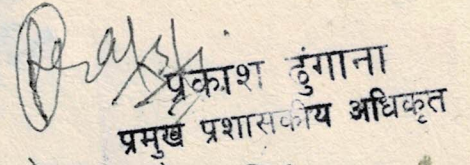 प्रकाश ढुंगाना
प्रमुख प्रशासकीय अधिकृत